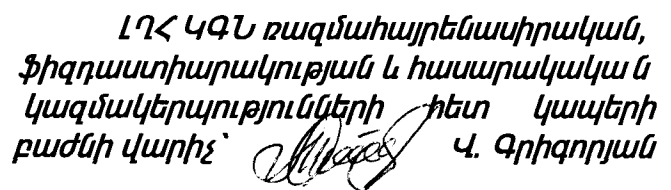 ԼՂՀ ԿԳՆ ռազմահայրենասիրական,
ֆիզդաստիարակության և հասարակական
կազմակերպությունների հետ կապերի
բաժնի վարիչ՝ Վ. Գրիգորյան